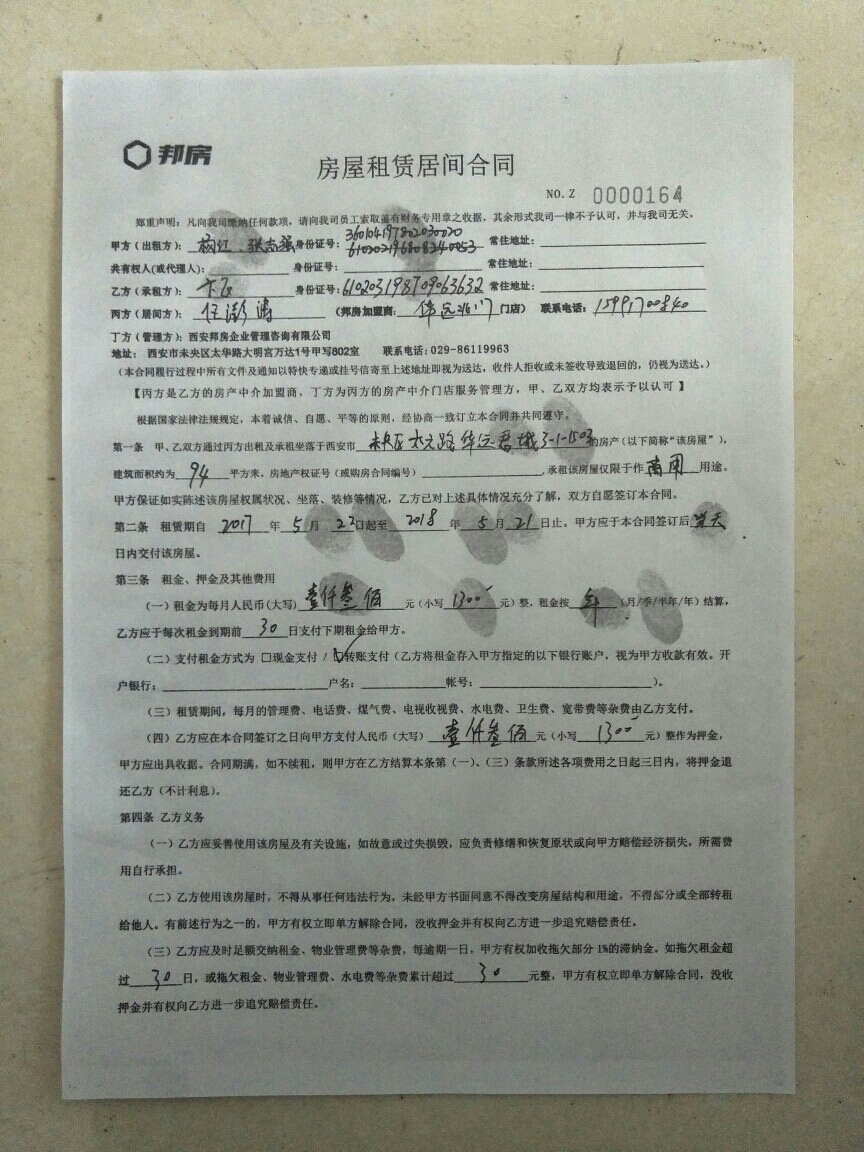 邦房
房屋租赁居间合同
NO.Z 0000164
郑重声明：凡向我司缴纳任何款项，请向我司员工索取盖有财务专用章之收据，其余形式我司一律不予认可，并与我司无关。
甲方（出租方）： 张志强 身份证号： 常住地址：
共有权人(或代理人)： 身份证号： 常住地址：
乙方（承租方）： 身份证号：610203198709063632 常住地址：
丙方（居间方）： 任澎涛 （邦房加盟商： 门店） 联系电话：
丁方（管理方）：西安邦房企业管理咨询有限公司
地址： 西安市未央区太华路大明宫万达1号甲写802室 联系电话:029-86119963
（本合同履行过程中所有文件及通知以特快专递或挂号信寄至上述地址即视为送达，收件人拒收或未签收导致退回的，仍视为送达。）
【丙方是乙方的房产中介加盟商，丁方为丙方的房产中介门店服务管理方，甲、乙双方均表示予以认可】
根据国家法律法规规定，本着诚信、自愿、平等的原则，经协商一致订立本合同并共同遵守。
第一条 甲、乙双方通过丙方出租及承租坐落于西安市 未央区太元路华远君城3-1-1503的房产（以下简称“该房屋”），
建筑面积约为 94 平方米，房地产权证号（或购房合同编号） ,承租该房屋仅限于作 商用 用途。
甲方保证如实陈述该房屋权属状况、坐落、装修等情况，乙方已对上述具体情况充分了解，双方自愿签订本合同。
第二条 租赁期自 2017 年 5 月 22日起至 2018 年 5 月 21 日止。甲方应于本合同签订后 当天
日内交付该房屋。
第三条 租金、押金及其他费用
（一）租金为每月人民币(大写) 壹仟叁佰 元（小写 1300 元）整，租金按 年 （月/季/半年/年）结算，
乙方应于每次租金到期前 30 日支付下期租金给甲方。
（二）支付租金方式为 □现金支付 / ☑转账支付（乙方将租金存入甲方指定的以下银行账户，视为甲方收款有效。开
户银行： 户名： 帐号： ）。
（三）租赁期间，每月的管理费、电话费、煤气费、电视收视费、水电费、卫生费、宽带费等杂费由乙方支付。
（四）乙方应在本合同签订之日向甲方支付人民币（大写） 壹仟叁佰 元（小写 1300 元）整作为押金，
甲方应出具收据。合同期满，如不续租，则甲方在乙方结算本条第（一）、（三）条款所述各项费用之日起三日内，将押金退
还乙方（不计利息）。
第四条 乙方义务
（一）乙方应妥善使用该房屋及有关设施，如故意或过失损毁，应负责修缮和恢复原状或向甲方赔偿经济损失，所需费
用自行承担。
（二）乙方使用该房屋时，不得从事任何违法行为，未经甲方书面同意不得改变房屋结构和用途，不得部分或全部转租
给他人。有前述行为之一的，甲方有权立即单方解除合同，没收押金并有权向乙方进一步追究赔偿责任。
（三）乙方应及时足额交纳租金、物业管理费等杂费，每逾期一日，甲方有权加收拖欠部分 1%的滞纳金。如拖欠租金超
过 30 日，或拖欠租金、物业管理费、水电费等杂费累计超过 30 元整，甲方有权立即单方解除合同，没收
押金并有权向乙方进一步追究赔偿责任。